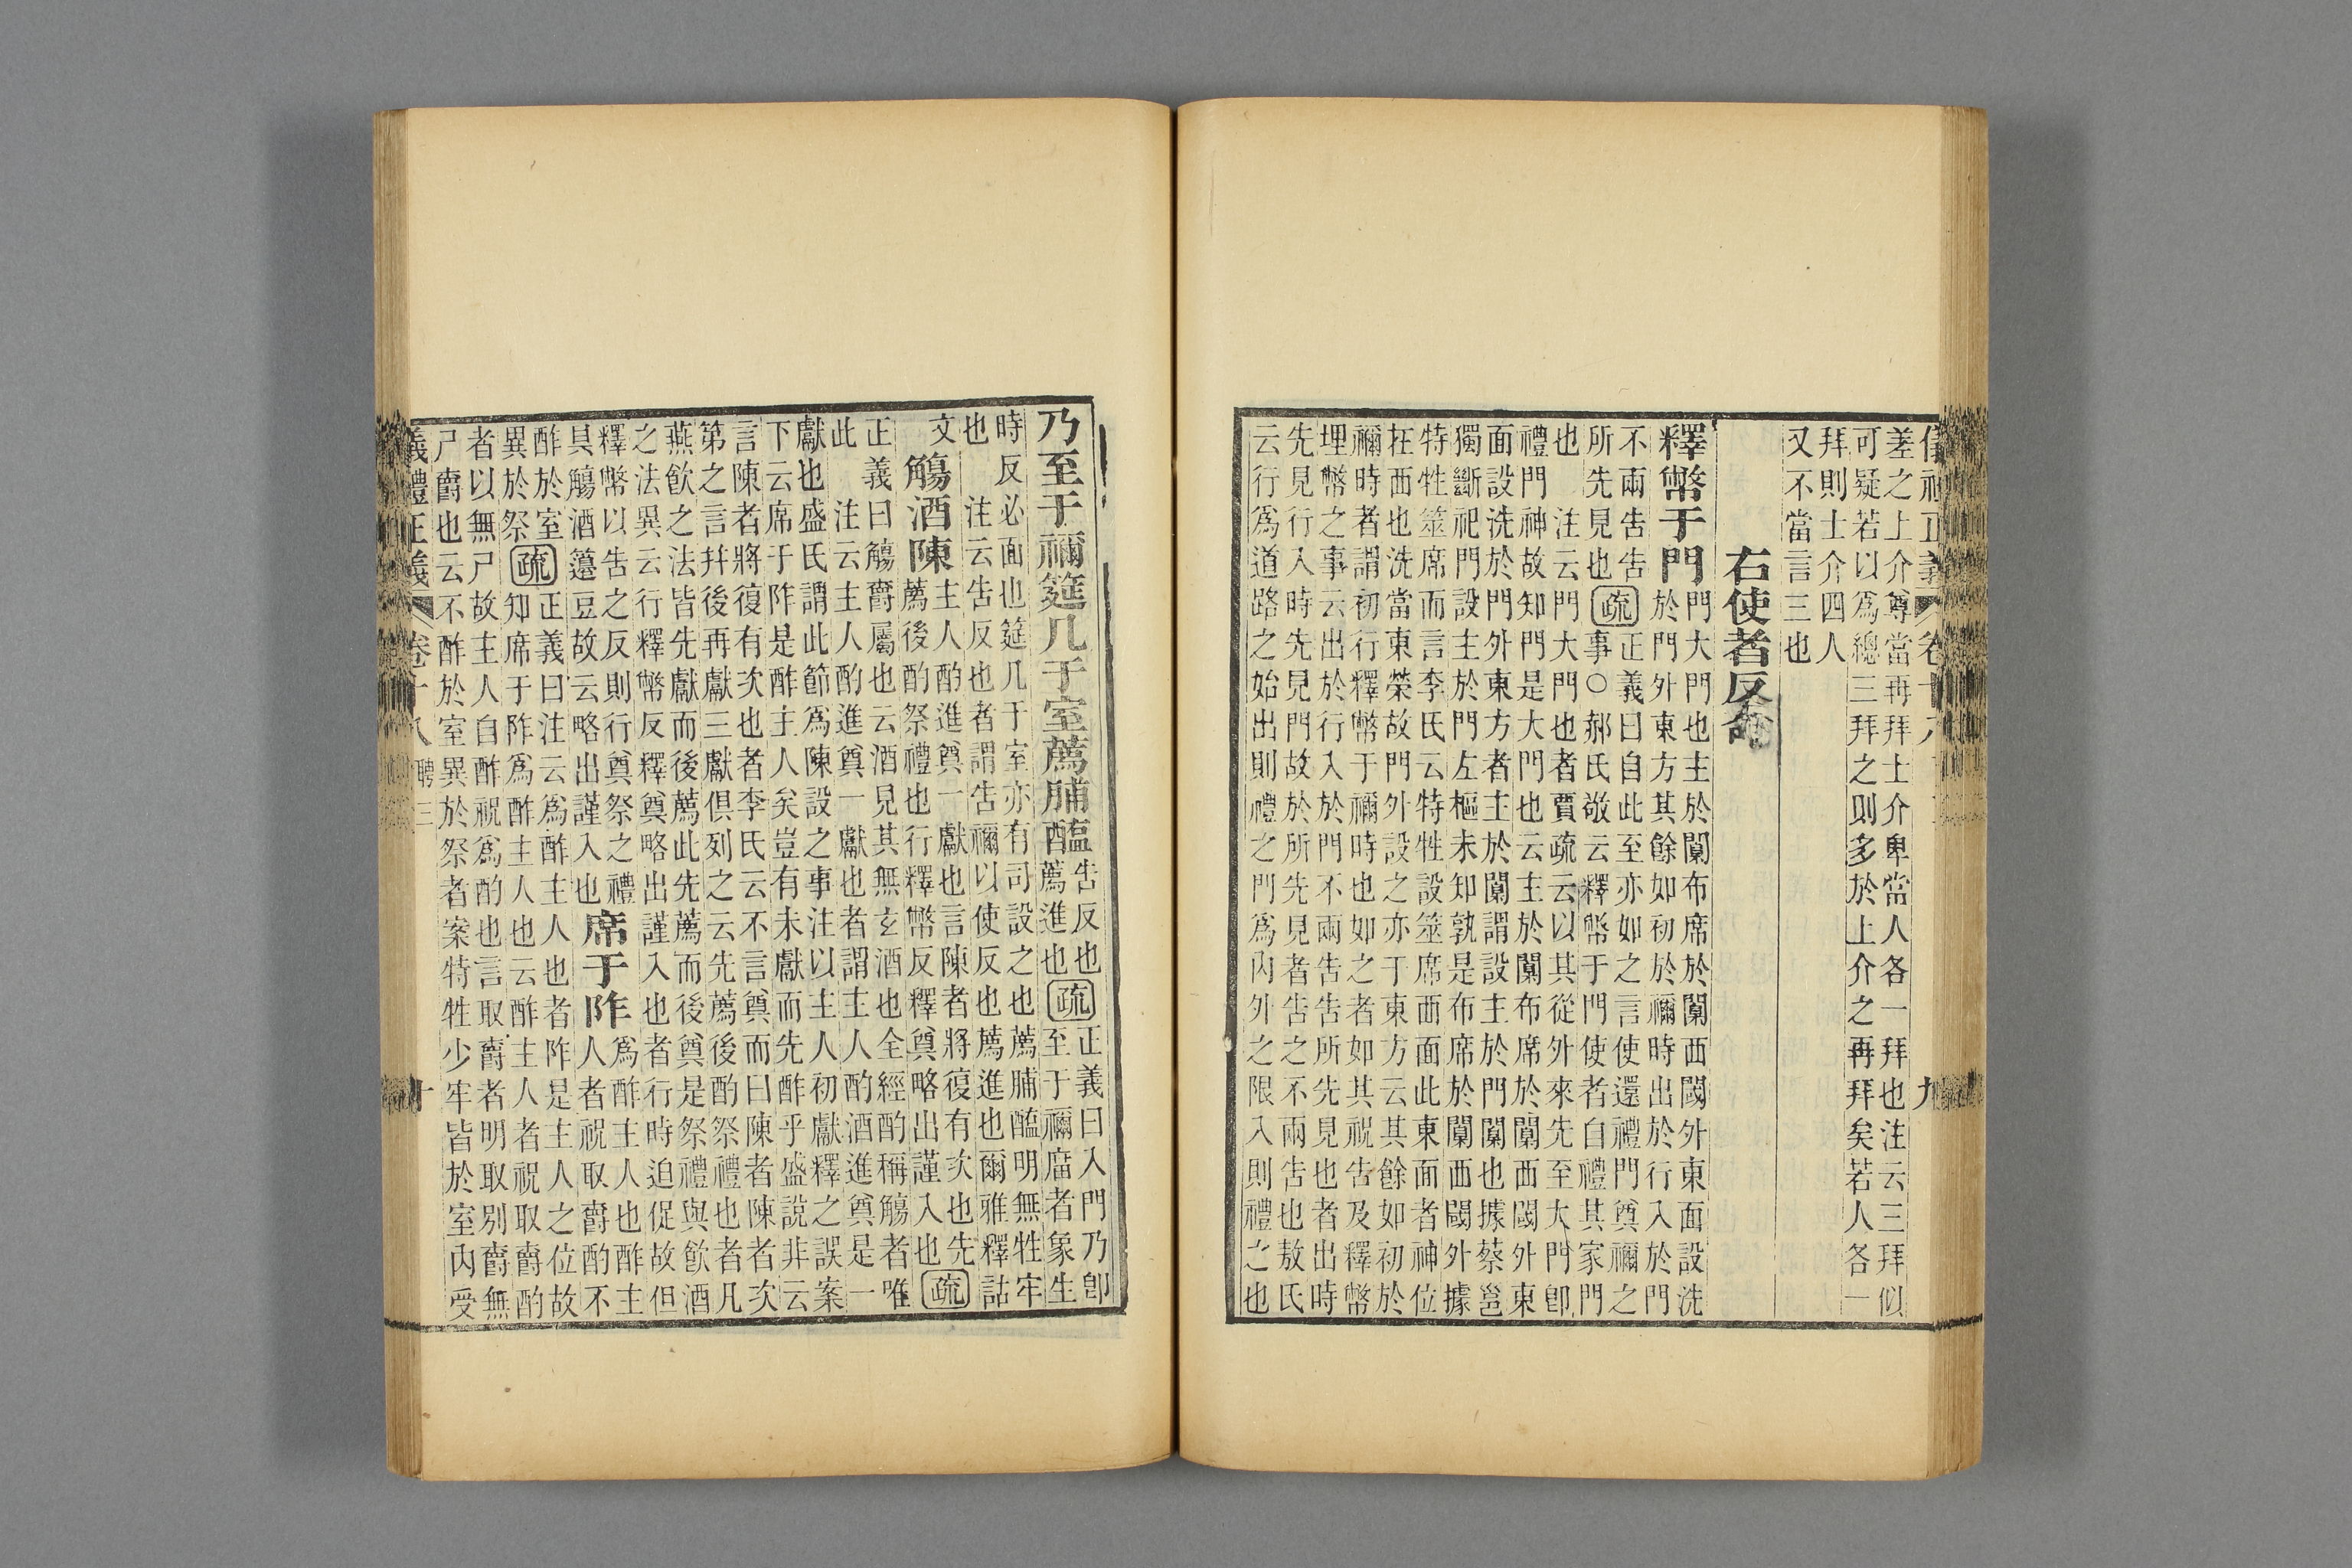 儀禮正義 卷十八 九
差之上介尊當再拜士介卑當人各一拜也注云三拜似
可疑若以爲總三拜之則多於上介之再拜矣若人各一
拜則士介四人
又不當言三也
右使者反命
釋幣于門
門大門也主於闑布席於闑西閾外東面設洗
於門外東方其餘如初於禰時出於行入於門
不兩告告
所先見也
疏
正義曰自此至亦如之言使還禮門奠禰之
事○郝氏敬云釋幣于門使者自禮其家門
也　注云門大門也者賈疏云以其從外來先至大門卽
禮門神故知門是大門也云主於闑布席於闑西閾外東
面設洗於門外東方者主於闑謂設主於門闑也據蔡邕
獨斷祀門設主於門左樞未知孰是布席於闑西閾外據
特牲筮席而言李氏云特牲設筮席西面此東面者神位
在西也洗當東榮故門外設之亦于東方云其餘如初於
禰時者謂初行釋幣于禰時也如之者如其祝告及釋幣
埋幣之事云出於行入於門不兩告告所先見也者出時
先見行入時先見門故於所先見者告之不兩告也敖氏
云行爲道路之始出則禮之門爲內外之限入則禮之也
乃至于禰筵几于室薦脯醢
告反也
薦進也
疏
正義曰入門乃卽
至于禰廟者象生
時反必面也筵几于室亦有司設之也薦脯醢明無牲牢
也　注云告反也者謂告禰以使反也薦進也爾雅釋詁
文
觴酒陳
主人酌進奠一獻也言陳者將復有次也先
薦後酌祭禮也行釋幣反釋奠略出謹入也
疏
正義曰觴爵屬也云酒見其無玄酒也全經酌稱觴者唯
此　注云主人酌進奠一獻也者謂主人酌酒進奠是一
獻也盛氏謂此節爲陳設之事注以主人初獻釋之誤案
下云席于阼是酢主人矣豈有未獻而先酢乎盛說非云
言陳者將復有次也者李氏云不言奠而曰陳者陳者次
第之言幷後再獻三獻俱列之云先薦後酌祭禮也者凡
燕飮之法皆先獻而後薦此先薦而後奠是祭禮與飮酒
之法異云行釋幣反釋奠略出謹入也者行時迫促故但
釋幣以告之反則行奠祭之禮
具觴酒籩豆故云略出謹入也
席于阼
爲酢主人也酢主
人者祝取爵酌不
酢於室
異於祭
疏
正義曰注云爲酢主人也者阼是主人之位故
知席于阼爲酢主人也云酢主人者祝取爵酌
者以無尸故主人自酢祝爲酌也言取爵者明取別爵無
尸爵也云不酢於室異於祭者案特牲少牢皆於室內受
義禮正義 卷十八 聘三 十